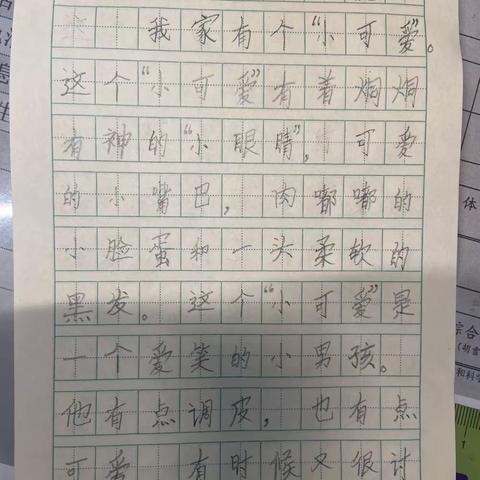 我家有个“小可爱”。
这个“小可爱”有着炯炯
有神的“小眼睛”，可爱
的小嘴巴，肉嘟嘟的
小脸蛋和一头柔软的
黑发。这个“小可爱”是
一个爱笑的小男孩。
他有点调皮，也有点
可爱 有时候又很讨
体
综合
和科学
1